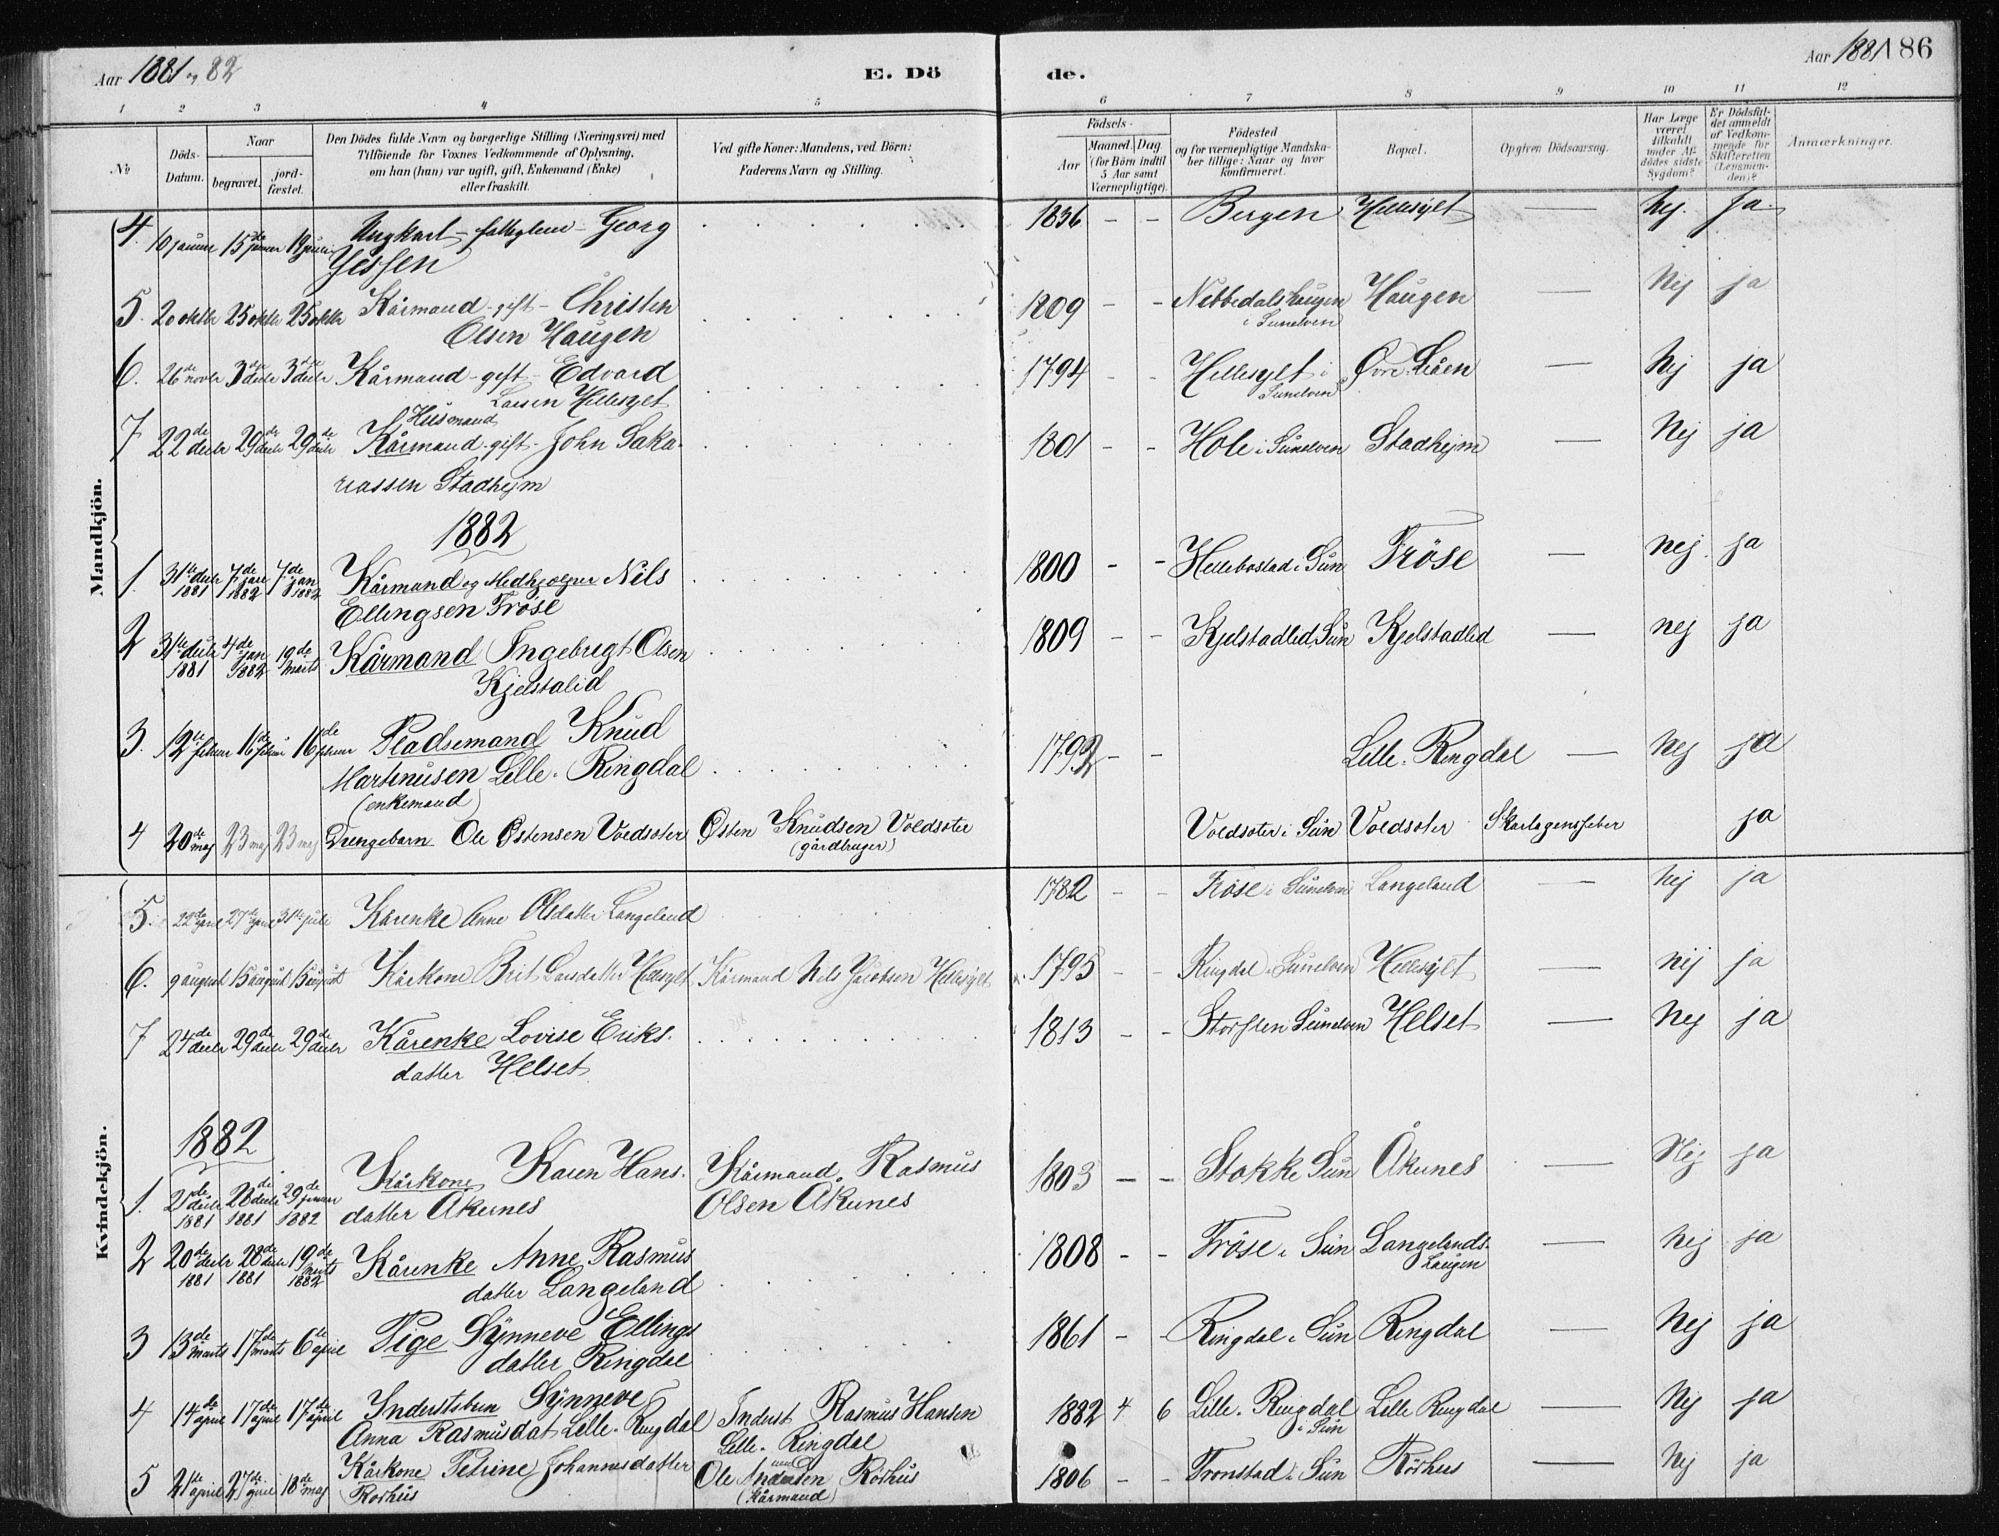 Aar 1881 og 82
E. Dö
de.
Aar 1881
186
1 2 3 4 5 6 7 8 9 10 11 12
No
Döds-
Datum.
Naar
begravet.
jord-
fæstet.
Den Dödes fulde Navn og borgerlige Stilling (Næringsvei) med
Tilföiende for Voxnes Vedkommende af Oplysning,
om han (hun) var ugift, gift, Enkemand (Enke)
eller fraskilt.
Ved gifte Koner: Mandens, ved Börn:
Faderens Navn og Stilling.
Födsels-
Aar
Maaned. Dag
(for Börn indtil
5 Aar samt
Værnepligtige).
Födested
og for værnepligtige Mandska-
ber tillige: Naar og hvor
konfirmeret.
Bopæl.
Opgiven Dödsaarsag.
Har Læge
været
tilkaldt
under Af-
dödes sidste
Sygdom?
Er Dödsfal-
det anmeldt
af Vedkom-
mende for
Skifteretten
(Lensman-
den)?
Anmærkninger.
Mandkjön.
4. 10 januar 15de januar 19 juni Ungkarl - fattiglem - Georg 1836 - - Bergen Hellesylt — Nej. Ja.
Jessen
5. 20 oktbr 25 oktbr 25 oktbr Kårmand - gift - Christen 1809 - - Nebbedalshaugen Haugen — Nej ja
Olsen Haugen i Sunelven
6. 26de novbr 3de decbr 3de decbr Kårmand - gift - Edvard 1794 - - Hellesylt i Øvre Liåen — Nej ja
Larsen Hellesylt Sunelven
Husmand
7 22de decbr 29de decbr 29de decbr Kårmand - gift - John Saka- 1801 - - Hole i Sunelven Stadhejm Nej ja
riassen Stadhejm
1882
1. 31te decbr 7de jan 7de jan Kårmand og Medhjælper Nils 1800 - - Hellebostad i Sun Tröse — nej. ja
1881 1882 1882 Ellingsen Tröse
2 31te decbr 4de jan 19de marts Kårmand Ingebregt Olsen 1809 - - Kjelstadlid, Sun Kjelstadlid — nej ja
1881 1882 Kjelstalid
3. 12te februar 16de februar 16de februar Pladsemand Knud 1792 - - Lille-Ringdal — Nej ja
Martinusen Lille-Ringdal
(enkemand)
4 20de maj 23 maj 23 maj Drengebarn Ole Østensen Voldsæter Østen Knudsen Voldsæter Voldsæter i Sun Voldsæter Skarlagensfeber ja
(gårdbruger)
Kvindekjön.
5. 22de april 27de april 31te juli Kårenke Anne Olsdatter Langeland 1782 - - Tröse i Sunelven Langeland — Nej ja
6. 9 august 15 august 15 august Kårkone Brit Larsdatter Hellesylt Kårmand Nils Jacobsen Hellesylt 1795 - - Ringdal i Sunelven Hellesylt — nej ja
7 24de decbr 29de decbr 29de decbr Kårenke Lovise Eriks- 1813 - - Storflen Sunelven Helset — Nej ja
datter Helset
1882
1. 21de decbr 28de decbr 29de januar Kårkone Karen Hans- Kårmand Rasmus 1803 - - Stokke Sun Åkunes — Nej ja
1881 1881 1882 datter Åkernes Olsen Åkunes
2 20de decbr 28de decbr 19de marts Kårenke Anne Rasmus 1808 - - Tröse i Sun Langelands- — nej ja
1881 1881 1882 datter Langeland haugen
3 13de marts 17de marts 6de april Pige Synneve Ellings 1861 - - Ringdal i Sun Ringdal — Nej ja
datter Ringdal
4 14de april 17de april 17de april Inderstebarn Synneve Inderst Rasmus Hansen 1882 4 6 Lille-Ringdal Lille Ringdal — Nej ja
Anna Rasmusdat Lille-Ringdal Lille-Ringdal i Sun
5 21de april 27de april 18de maj Kårkone Petrine Johannesdatter Ole Andersen Rörhus 1806 - - Tronstad i Sun Rörhus — Nej ja
Rörhus (Kårmand)